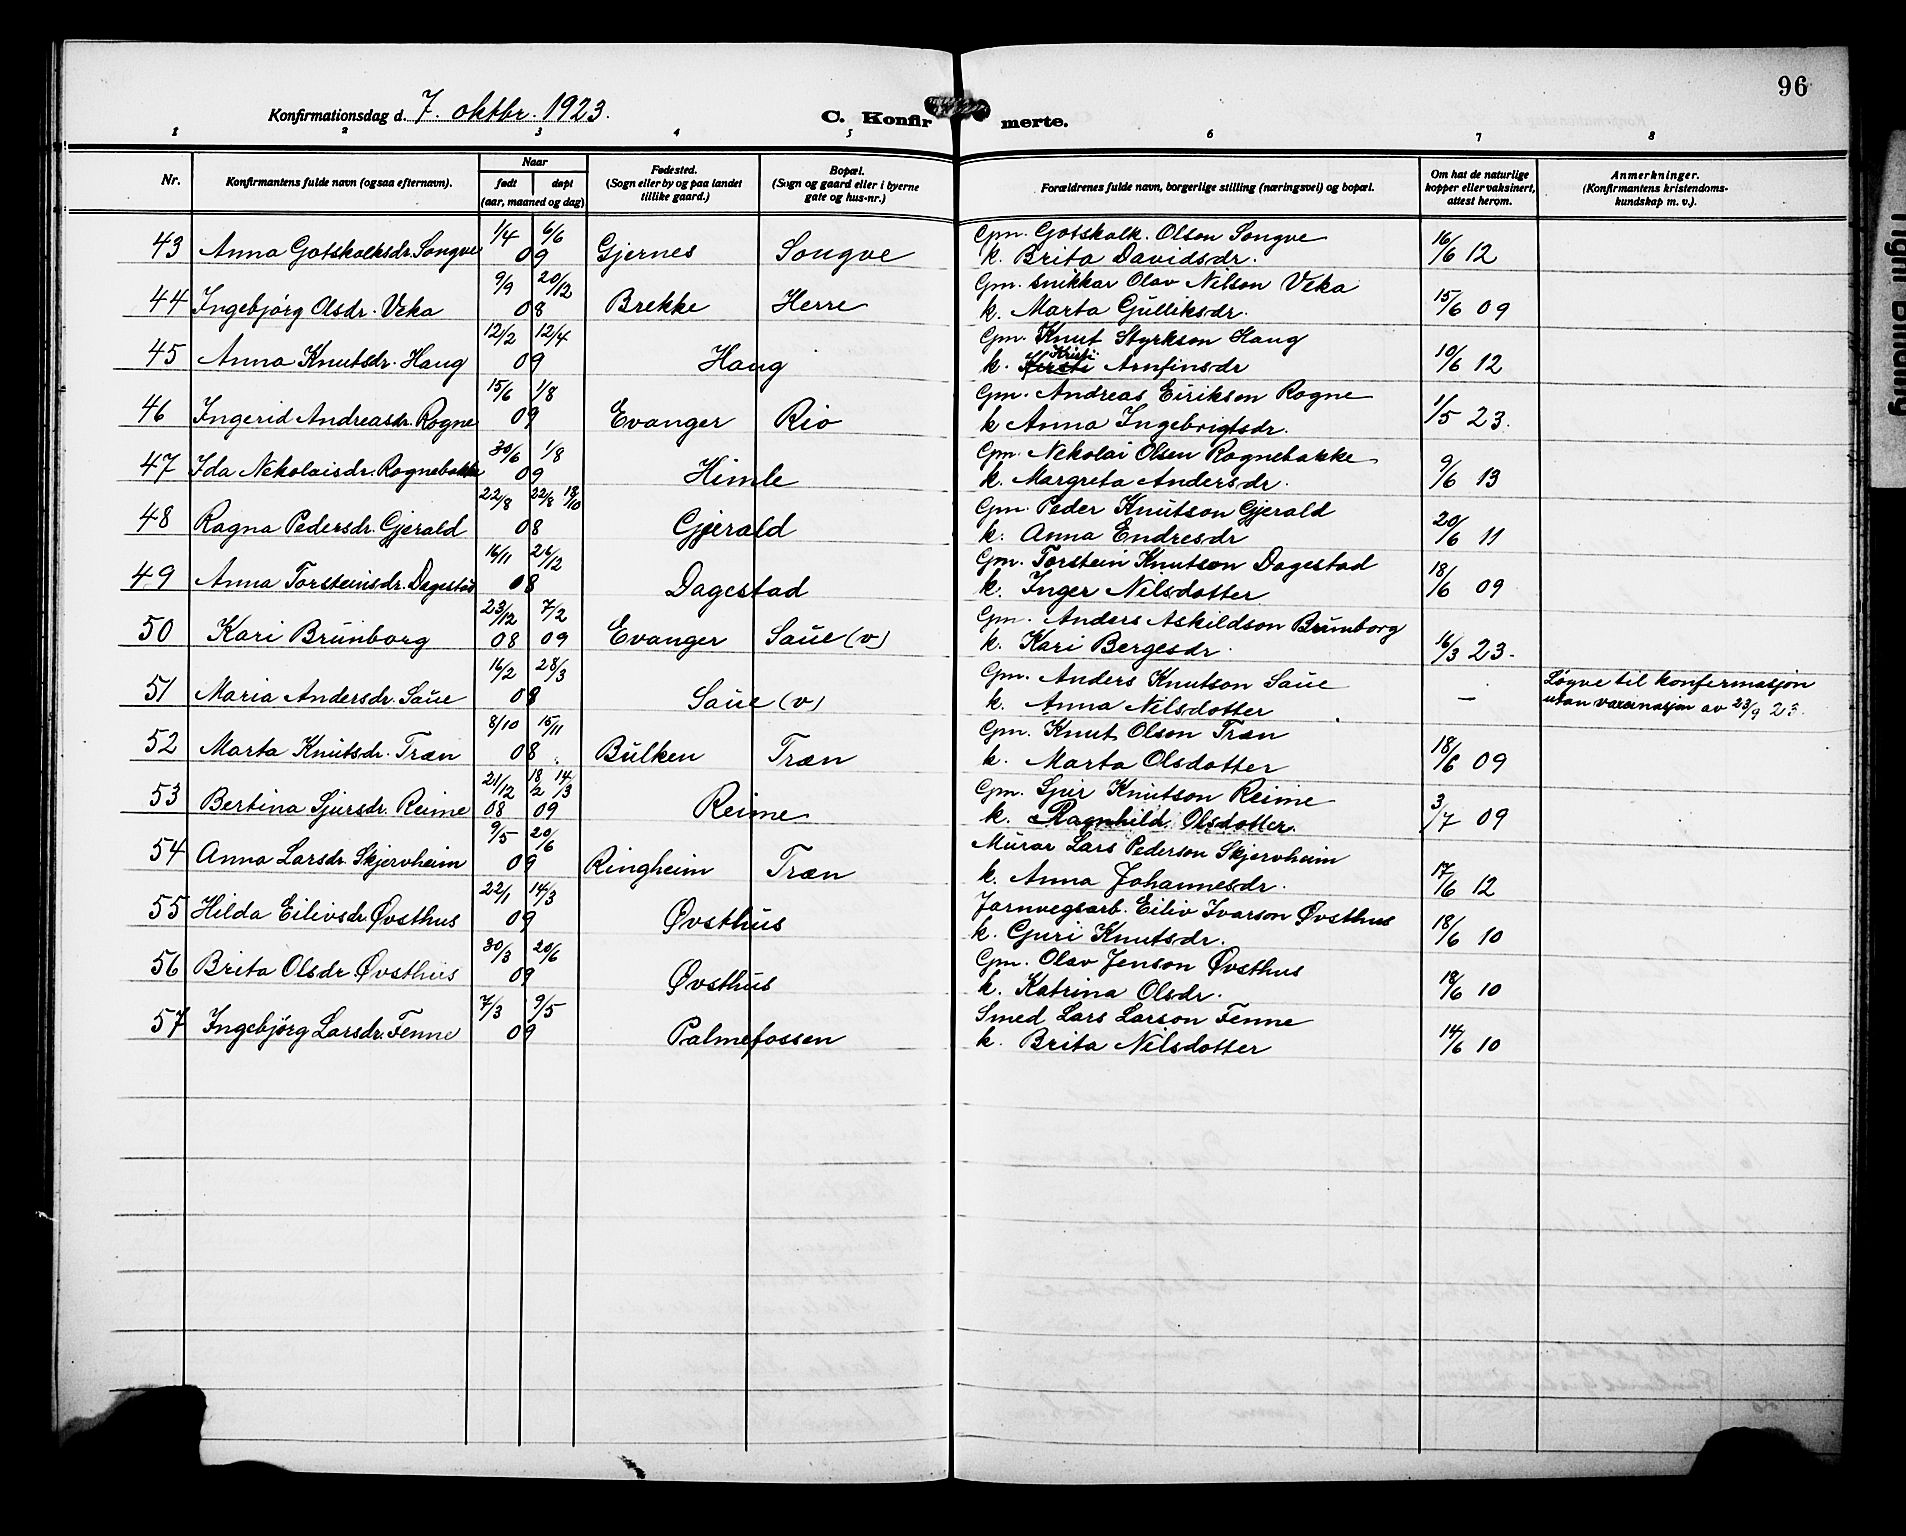 96
Konfirmationsdag d. 7. oktbr. 1923.
C. Konfirmerte.
1 2 3 4 5 6 7 8
Nr.
Konfirmantens fulde navn (ogsaa efternavn).
Naar
født døpt
(aar, maaned og dag)
Fødested.
(Sogn eller by og paa landet
tillike gaard.)
Bopæl.
(Sogn og gaard eller i byerne
gate og hus-nr.)
Forældrenes fulde navn, borgerlige stilling (næringsvei) og bopæl.
Om hat de naturlige
kopper eller vaksinert,
attest herom.
Anmerkninger.
(Konfirmantens kristendoms-
kundskap m. v.).
43 Anna Gotskalksdr. Songve 1/4 6/6 09 Gjernes Songve Gm. Gotskalk Olson Songve
k. Brita Davidsdr. 16/6 12
44 Ingebjørg Olsdr. Veka 9/9 20/12 08 Brekke Herre Gm. snikkar Olav Nilson Veka
k. Marta Gulliksdr. 15/6 09
45 Anna Knutsdr. Haug 12/2 12/4 09 Haug Gm. Knut Styrkson Haug
k. Kirsti Kristi Arnfinsdr 10/6 12
46 Ingerid Andreasdr. Rogne 15/6 1/8 09 Evanger Rio Gm. Andreas Eirikson Rogne
k Anna Ingebrigtsdr. 1/5 23.
47 Ida Nekolaisdr. Rognebakke 30/6 1/8 09 Himle Gm. Nekolai Olsen Rognebakke
k. Margreta Andersdr. 9/6 13
48 Ragna Pedersdr. Gjerald 22/8 22/8 18/10 08 Gjerald Gm. Peder Knutson Gjerald
k. Anna Endresdr 20/6 11
49 Anna Torsteinsdr. Dagestad 16/11 26/12 08 Dagestad Gm. Torstein Knutson Dagestad
k. Inger Nilsdotter 18/6 09
50 Kari Brunborg 23/12 08 7/2 09 Evanger Saue (v) Gm. Anders Askildson Brunborg
k. Kari Bergesdr. 16/3 23.
51 Maria Andersdr. Saue 16/2 28/3 08 Saue (v) Gm. Anders Knutson Saue
k. Anna Nilsdotter — Løyve til konfirmasjon
utan vaxinasjon av 23/9 23.
52 Marta Knutsdr. Træn 8/10 15/11 08 Bulken Træn Gm. Knut Olson Træn
k. Marta Olsdotter 18/6 09
53 Bertina Sjursdr. Reime 21/12 08 18/2 14/3 09 Reime Gm. Sjur Knutson Reime
k. Ragnhild Olsdotter. 3/7 09
54 Anna Larsdr. Skjervheim 9/5 20/6 09 Ringheim Træn Murar Lars Pederson Skjervheim
k. Anna Johannesdr. 17/6 12
55 Hilda Eilivsdr. Øvsthus 22/1 14/3 09 Øvsthus Jarnvegsarb. Eiliv Ivarson Øvsthus
k. Guri Knutsdr. 18/6 10
56 Brita Olsdr Øvsthus 30/3 20/6 09 Øvsthus Gm. Olav Jenson Øvsthus
k. Katrina Olsdr. 18/6 10
57 Ingebjørg Larsdr. Fenne 7/3 9/5 09 Palmefossen Smed Lars Larson Fenne
k. Brita Nilsdotter 14/6 10
Tight Binding